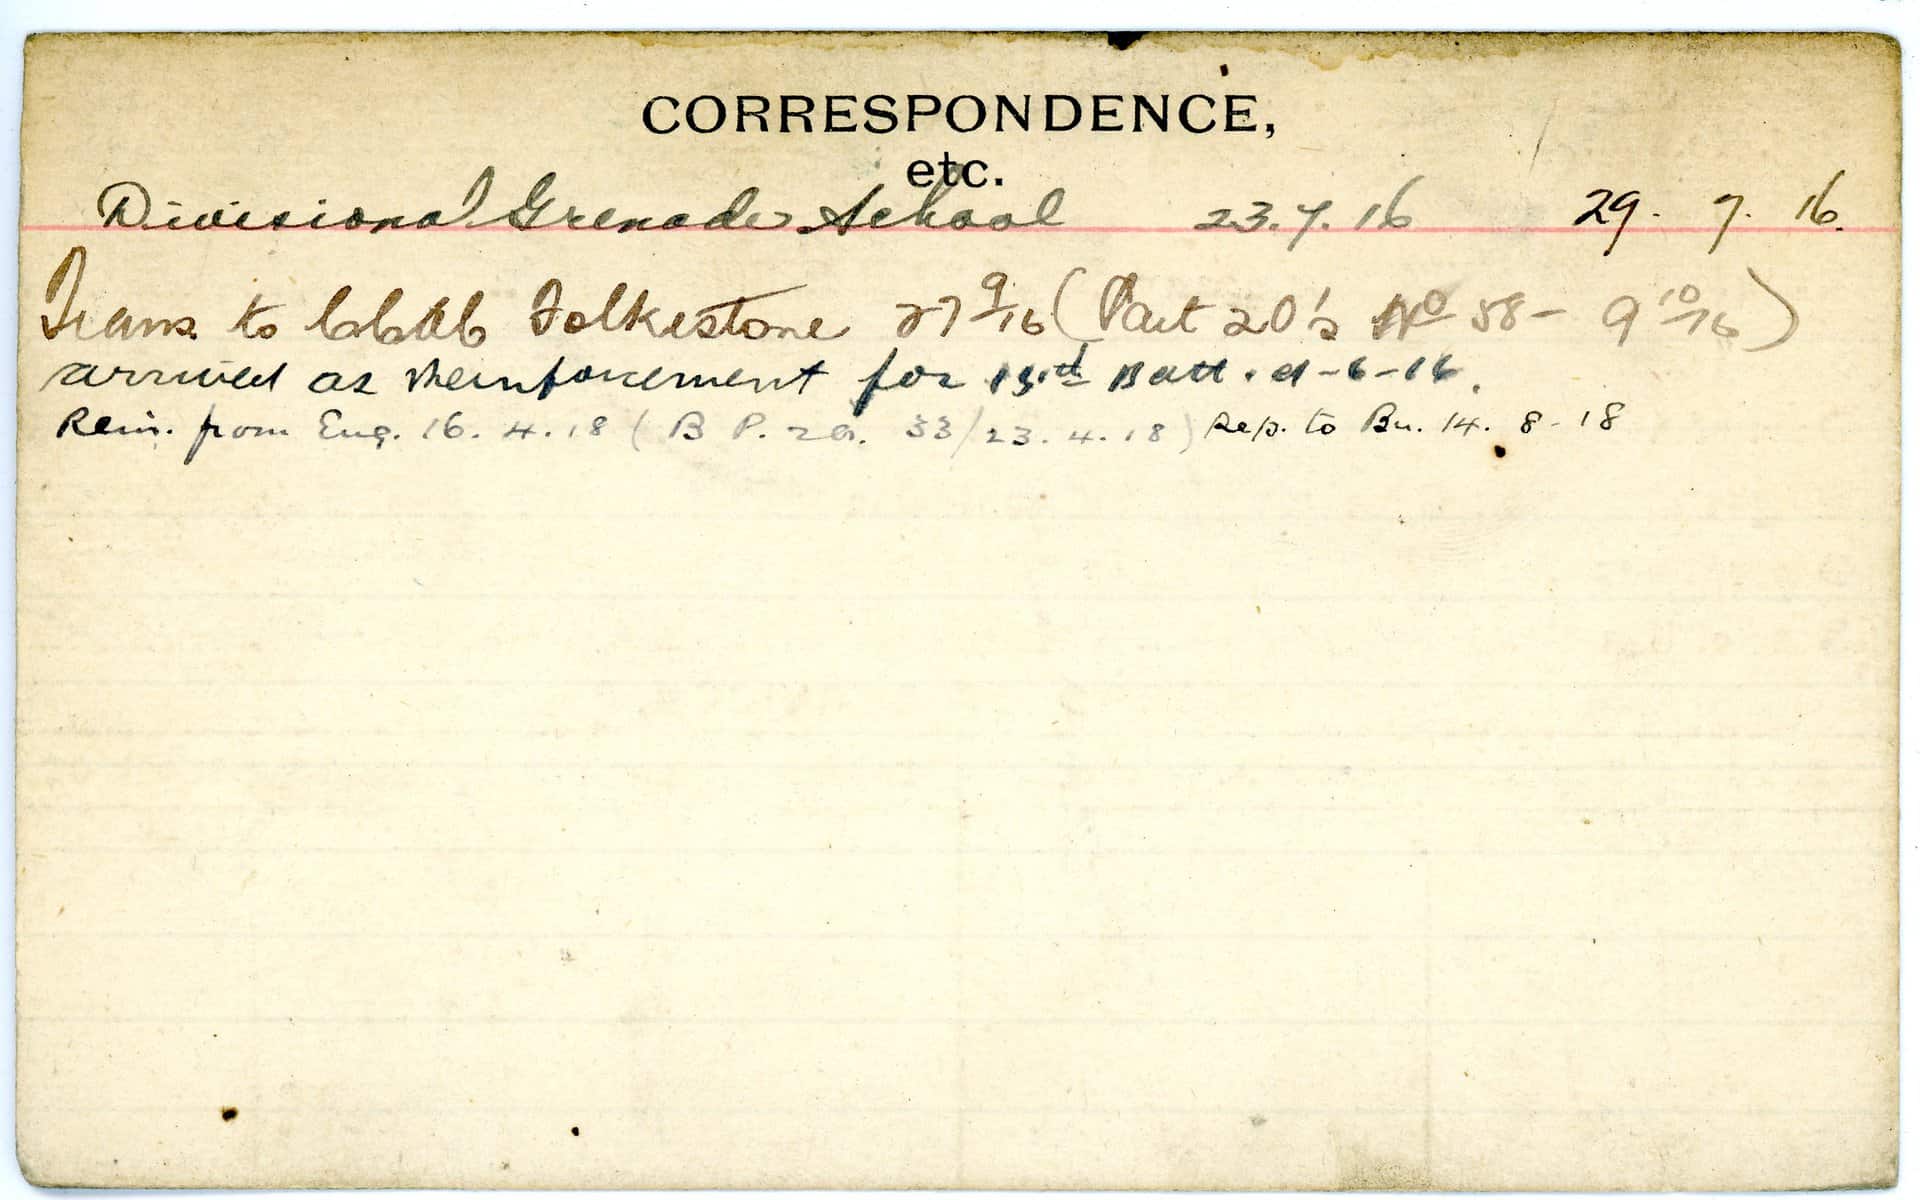 CORRESPONDENCE,
etc.
Divisional Grenade School 23.7.16 29. 7. 16.
Trans to CCAC Folkestone 27 9/16 (Part 2 O's No 58 - 9 10/16)
arrived as Reinforcement for Batt. -6-16.
Rein. from Eng. 16. 4. 18 (B P. 33/23. 4. 18) Rep. to Bn. 14. 8 - 18